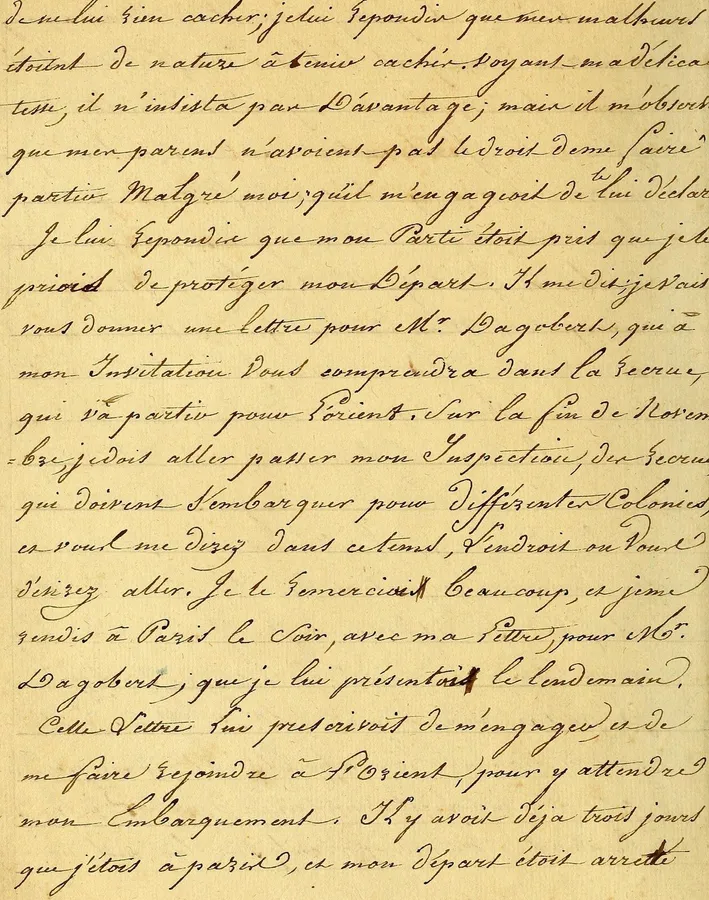 de ne lui rien cacher; je lui repondis que mes malheurs
étoient de nature à tenir cachés. Voyant ma délica
tesse, il n'insista pas D'avantage; mais il m'observ
que mes parens n'avoient pas le droit de me faire
partir Malgré moi; qu'il m'engageoit de te lui déclar
Je lui repondis que mon Parti étoit pris que je le
priois de protéger mon Départ. Il me dit; je vais
vous donner une lettre pour Mr. Dagobert, qui à
mon Invitation Vous comprendra dans la recrue,
qui và partir pour L'orient. Sur la fin de Novem
=bre, je dois aller passer mon Inspection, des recrue
qui doivent s'embarquer pour différentes Colonies,
et vous me direz dans ce tems, L'endroit ou Vous
désirez aller. Je le remerciois beaucoup, et je me
rendis à Paris le Soir, avec ma Lettre, pour Mr.
Dagobert; que je lui présentois le lendemain.
Cette Lettre Lui prescrivoit de m'engager, et de
me faire rejoindre à L'Orient, pour y attendre
mon Embarquement. Il y avoit déja trois jours
que j'étois à paris, et mon départ étoit arretté